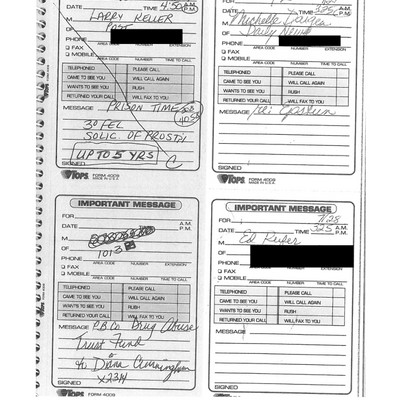 DATE TIME 4:50 A.M. P.M.
M LARRY KELLER
OF POST
PHONE
AREA CODE NUMBER EXTENSION
FAX
MOBILE
TELEPHONED PLEASE CALL
CAME TO SEE YOU WILL CALL AGAIN
WANTS TO SEE YOU RUSH
RETURNED YOUR CALL WILL FAX TO YOU
MESSAGE PRISON TIME
3° FEL
SOLIC. OF PROST
UP TO 5 YRS
SIGNED
TOPS FORM 4009
MADE IN U.S.A.
DATE TIME A.M. P.M.
M Michelle
OF Daily News
PHONE
AREA CODE NUMBER EXTENSION
FAX
MOBILE
TELEPHONED PLEASE CALL
CAME TO SEE YOU WILL CALL AGAIN
WANTS TO SEE YOU RUSH
RETURNED YOUR CALL WILL FAX TO YOU
MESSAGE Epstein
SIGNED
TOPS FORM 4009
MADE IN U.S.A.
IMPORTANT MESSAGE
FOR
DATE TIME A.M. P.M.
M
OF 1013
PHONE
AREA CODE NUMBER EXTENSION
FAX
MOBILE
TELEPHONED PLEASE CALL
CAME TO SEE YOU WILL CALL AGAIN
WANTS TO SEE YOU RUSH
RETURNED YOUR CALL WILL FAX TO YOU
MESSAGE P.B.Co. Drug Abuse
Trust Fund
Donna Cunningham
X2314
SIGNED
TOPS FORM 4009
IMPORTANT MESSAGE
FOR 7/28
DATE TIME 325 A.M. P.M.
M Ed
OF
PHONE
AREA CODE NUMBER EXTENSION
FAX
MOBILE
TELEPHONED PLEASE CALL
CAME TO SEE YOU WILL CALL AGAIN
WANTS TO SEE YOU RUSH
RETURNED YOUR CALL WILL FAX TO YOU
MESSAGE
SIGNED
TOPS FORM 4009